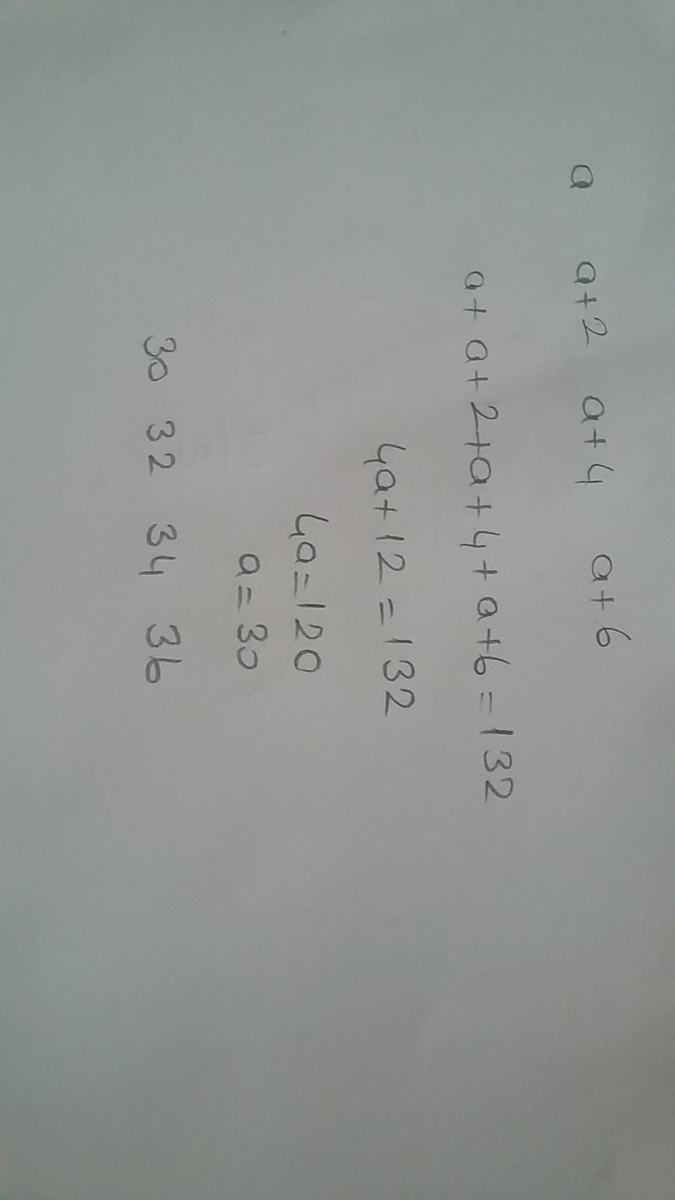 a a+2 a+4 a+6
a+a+2+a+4+a+6=132
4a+12=132
4a=120
a=30
30 32 34 36